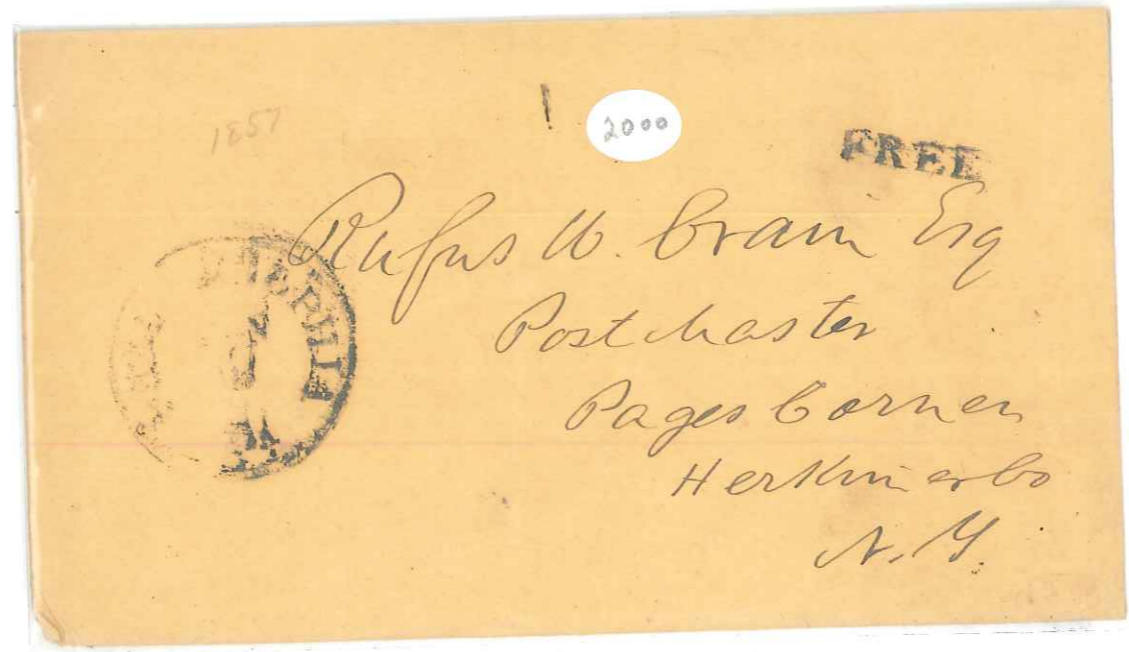 1857
2000
FREE
Rufus W. Crain Esq
Post Master
Pages Corners
Herkimer Co
N. Y.